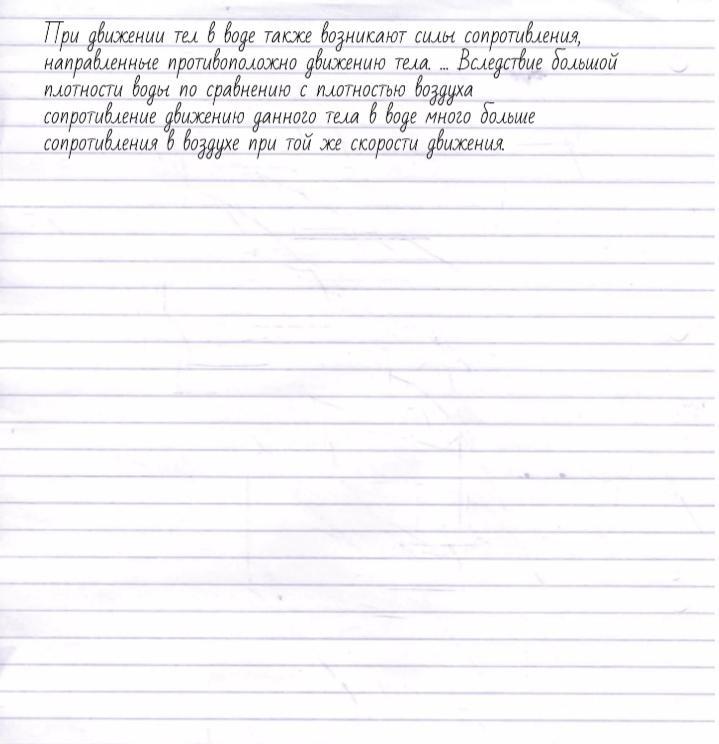 При движении тел в воде также возникают силы сопротивления,
направленные противоположно движению тела. ... Вследствие большой
плотности воды по сравнению с плотностью воздуха
сопротивление движению данного тела в воде много больше
сопротивления в воздухе при той же скорости движения.